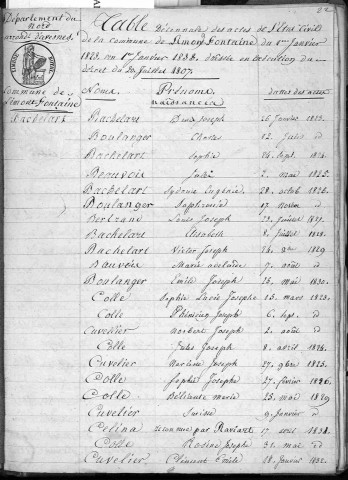 22
Département du
Nord
arrondt d'avesnes
Commune de
Limont Fontaine
Bachelart
Table Décennale des actes de l'Etat Civil
de la Commune de Limont Fontaine du 1er Janvier
1823 au 1er Janvier 1833. dressée en exécution du
décret du 20 Juillet 1807.
Noms. Prénoms dates des actes
naissances
Bachelart Joseph 16 Janvier 1823.
Boulanger Charles 22 Juillet d
Bachelart Sophie 26 Sept. 1824.
Beauvois Julie 2. mai 1825.
Bachelart Sydonie Eugénie 28. octobre 1826.
Boulanger Euphrosine 17 Novem d
Bertrand Louis Joseph 22 Juillet 1827.
Bachelart Elisabeth 8. Juillet 1828.
Bachelart Victor Joseph 1829
Bauvois Marie adelaïde 7. août d
Boulanger Emile Joseph 26. mai 1830.
Colle Sophie Lucie Josephe 15. mars 1823.
Colle Joseph 6. sept. d
Cuvellier Norbert Joseph 2. août d
Colle Jules Joseph 8. avril 1824.
Cuvelier Narcisse Joseph 27. 9bre 1825.
Colle Joseph 27. février 1826.
Colle marie 25. mai 1829
Cuvelier 9. Janvier d
Celina reconnue par Raviart 17 avril 1831.
Colle Rosine Josephe 31. mai d
Cuvelier Clément Emile 28. Janvier 1832.